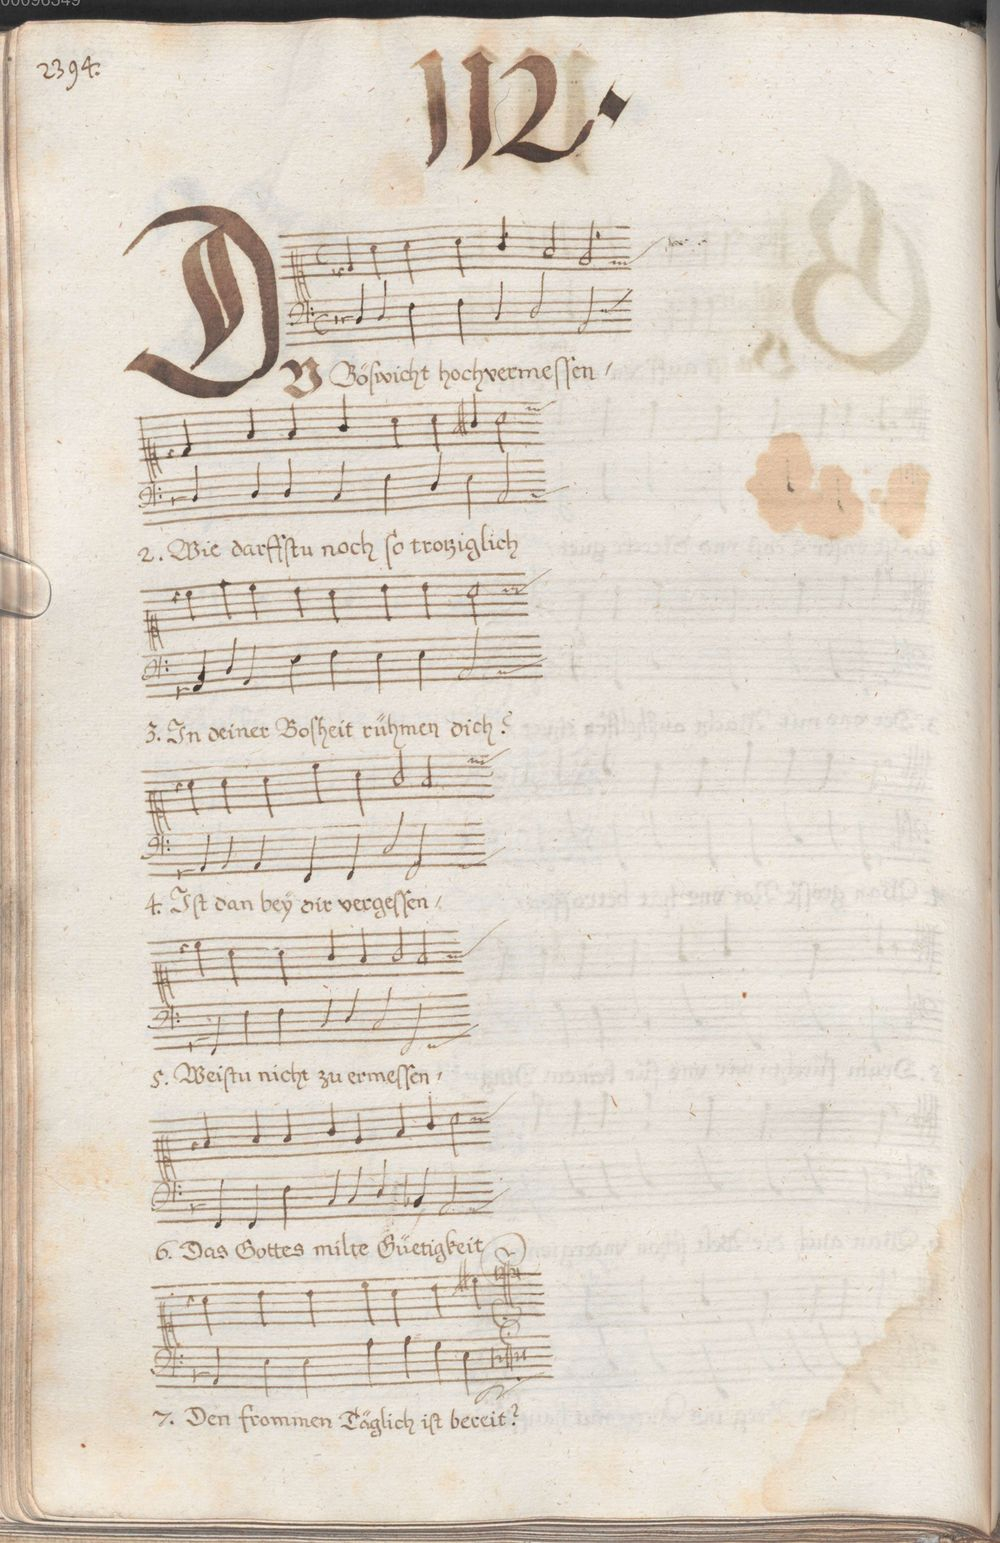 00096349
2394.
112.
DU Böswicht hochvermessen /
2. Wie darffstu noch so trotziglich
3. In deiner Bosheit rühmen dich?
4. Ist dan bey dir vergessen /
5. Weistu nicht zu ermessen /
6. Das Gottes milte Güetigkeit
7. Den frommen Täglich ist bereit?